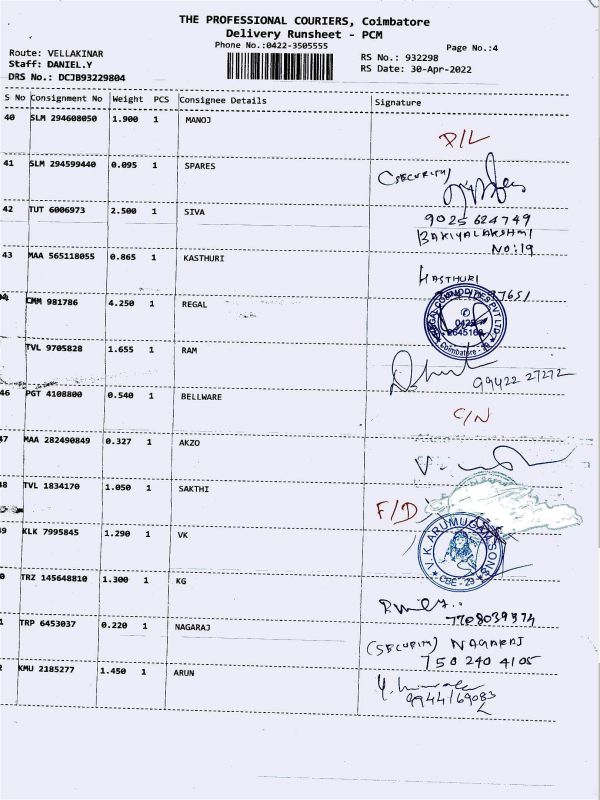 THE PROFESSIONAL COURIERS, Coimbatore
Delivery Runsheet - PCM
Phone No.:0422-3505555
Page No.:4
Route: VELLAKINAR
Staff: DANIEL.Y
DRS No.: DCJB93229804
RS No.: 932298
RS Date: 30-Apr-2022
S No Consignment No Weight PCS Consignee Details Signature
40 SLM 294608050 1.900 1 MANOJ
P/L
41 SLM 294599440 0.095 1 SPARES
(SECURITY)
42 TUT 6006973 2.500 1 SIVA
9025 624749
BAKIYALAKSHMI
NO:19
43 MAA 565118055 0.865 1 KASTHURI
KASTHURI
37651
CMM 981786 4.250 1 REGAL
REGAL COMMODITIES PVT LTD
Coimbatore - 29
TVL 9705828 1.655 1 RAM
99422 27272
46 PGT 4108800 0.540 1 BELLWARE
C/N
47 MAA 282490849 0.327 1 AKZO
48 TVL 1834170 1.050 1 SAKTHI
F/D
49 KLK 7995845 1.290 1 VK
V.K. ARUMUGAM SONS
CBE - 29
0 TRZ 145648810 1.300 1 KG
7708039374
1 TRP 6453037 0.220 1 NAGARAJ
(SECURITY) NAGARAJ
750 240 4105
2 KMU 2185277 1.450 1 ARUN
9944169083